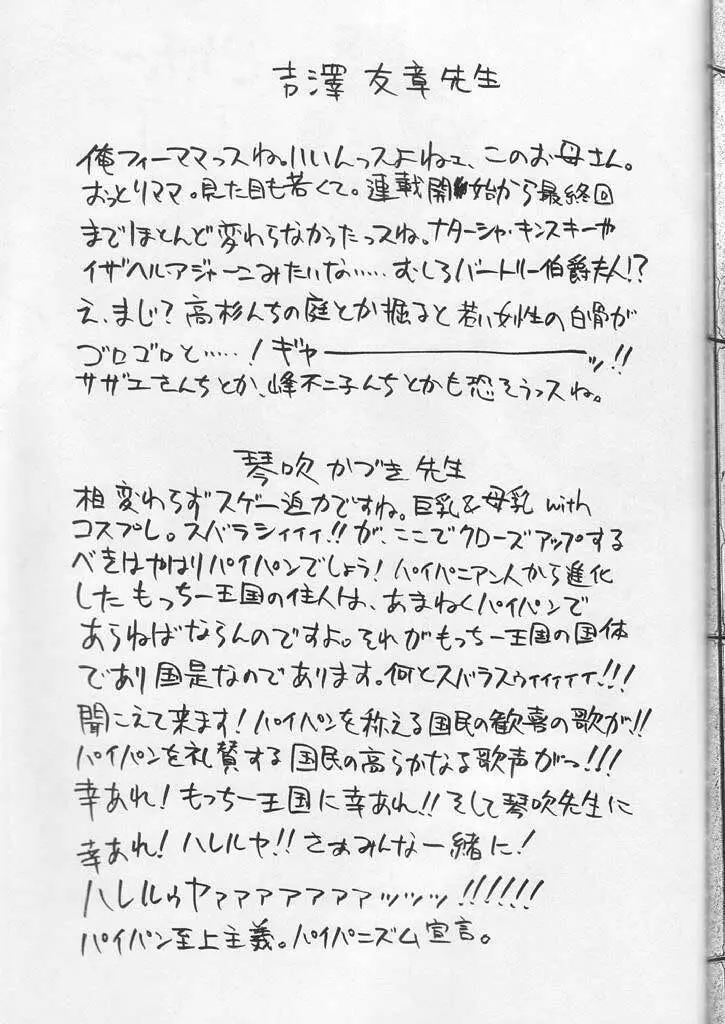 吉澤友章先生
俺フィーママっスね。いいんっスよねェ、このお母さん。
おっとりママ。見た目も若くて。連載開始から最終回
までほとんど変わらなかったっスね。ナターシャ・キンスキーや
イザベル・アジャーニみたいな……むしろバートリー伯爵夫人!?
え、まじ?高杉んちの庭とか掘ると若い女性の白骨が
ゴロゴロと……!ギャーーーッ!!
サザエさんちとか、峰不二子んちとかも恐そうっスね。
琴吹かづき先生
相変わらずスゲー迫力ですね。巨乳&母乳with
コスプレ。スバラシィィィ!!が、ここでクローズアップする
べきはやはりパイパンでしょう!パイパニアン人から進化
したもっちー王国の住人は、あまねくパイパンで
あらねばならんのですよ。それがもっちー王国の国体
であり国是なのであります。何とスバラスゥィィィィィ!!!
聞こえて来ます!パイパンを称える国民の歓喜の歌が!!
パイパンを礼賛する国民の高らかなる歌声がっ!!!
幸あれ!もっちー王国に幸あれ!!そして琴吹先生に
幸あれ!ハレルヤ!!さぁみんな一緒に!
ハレルゥヤァァァァァァァッッッ!!!!!!
パイパン至上主義。パイパニズム宣言。